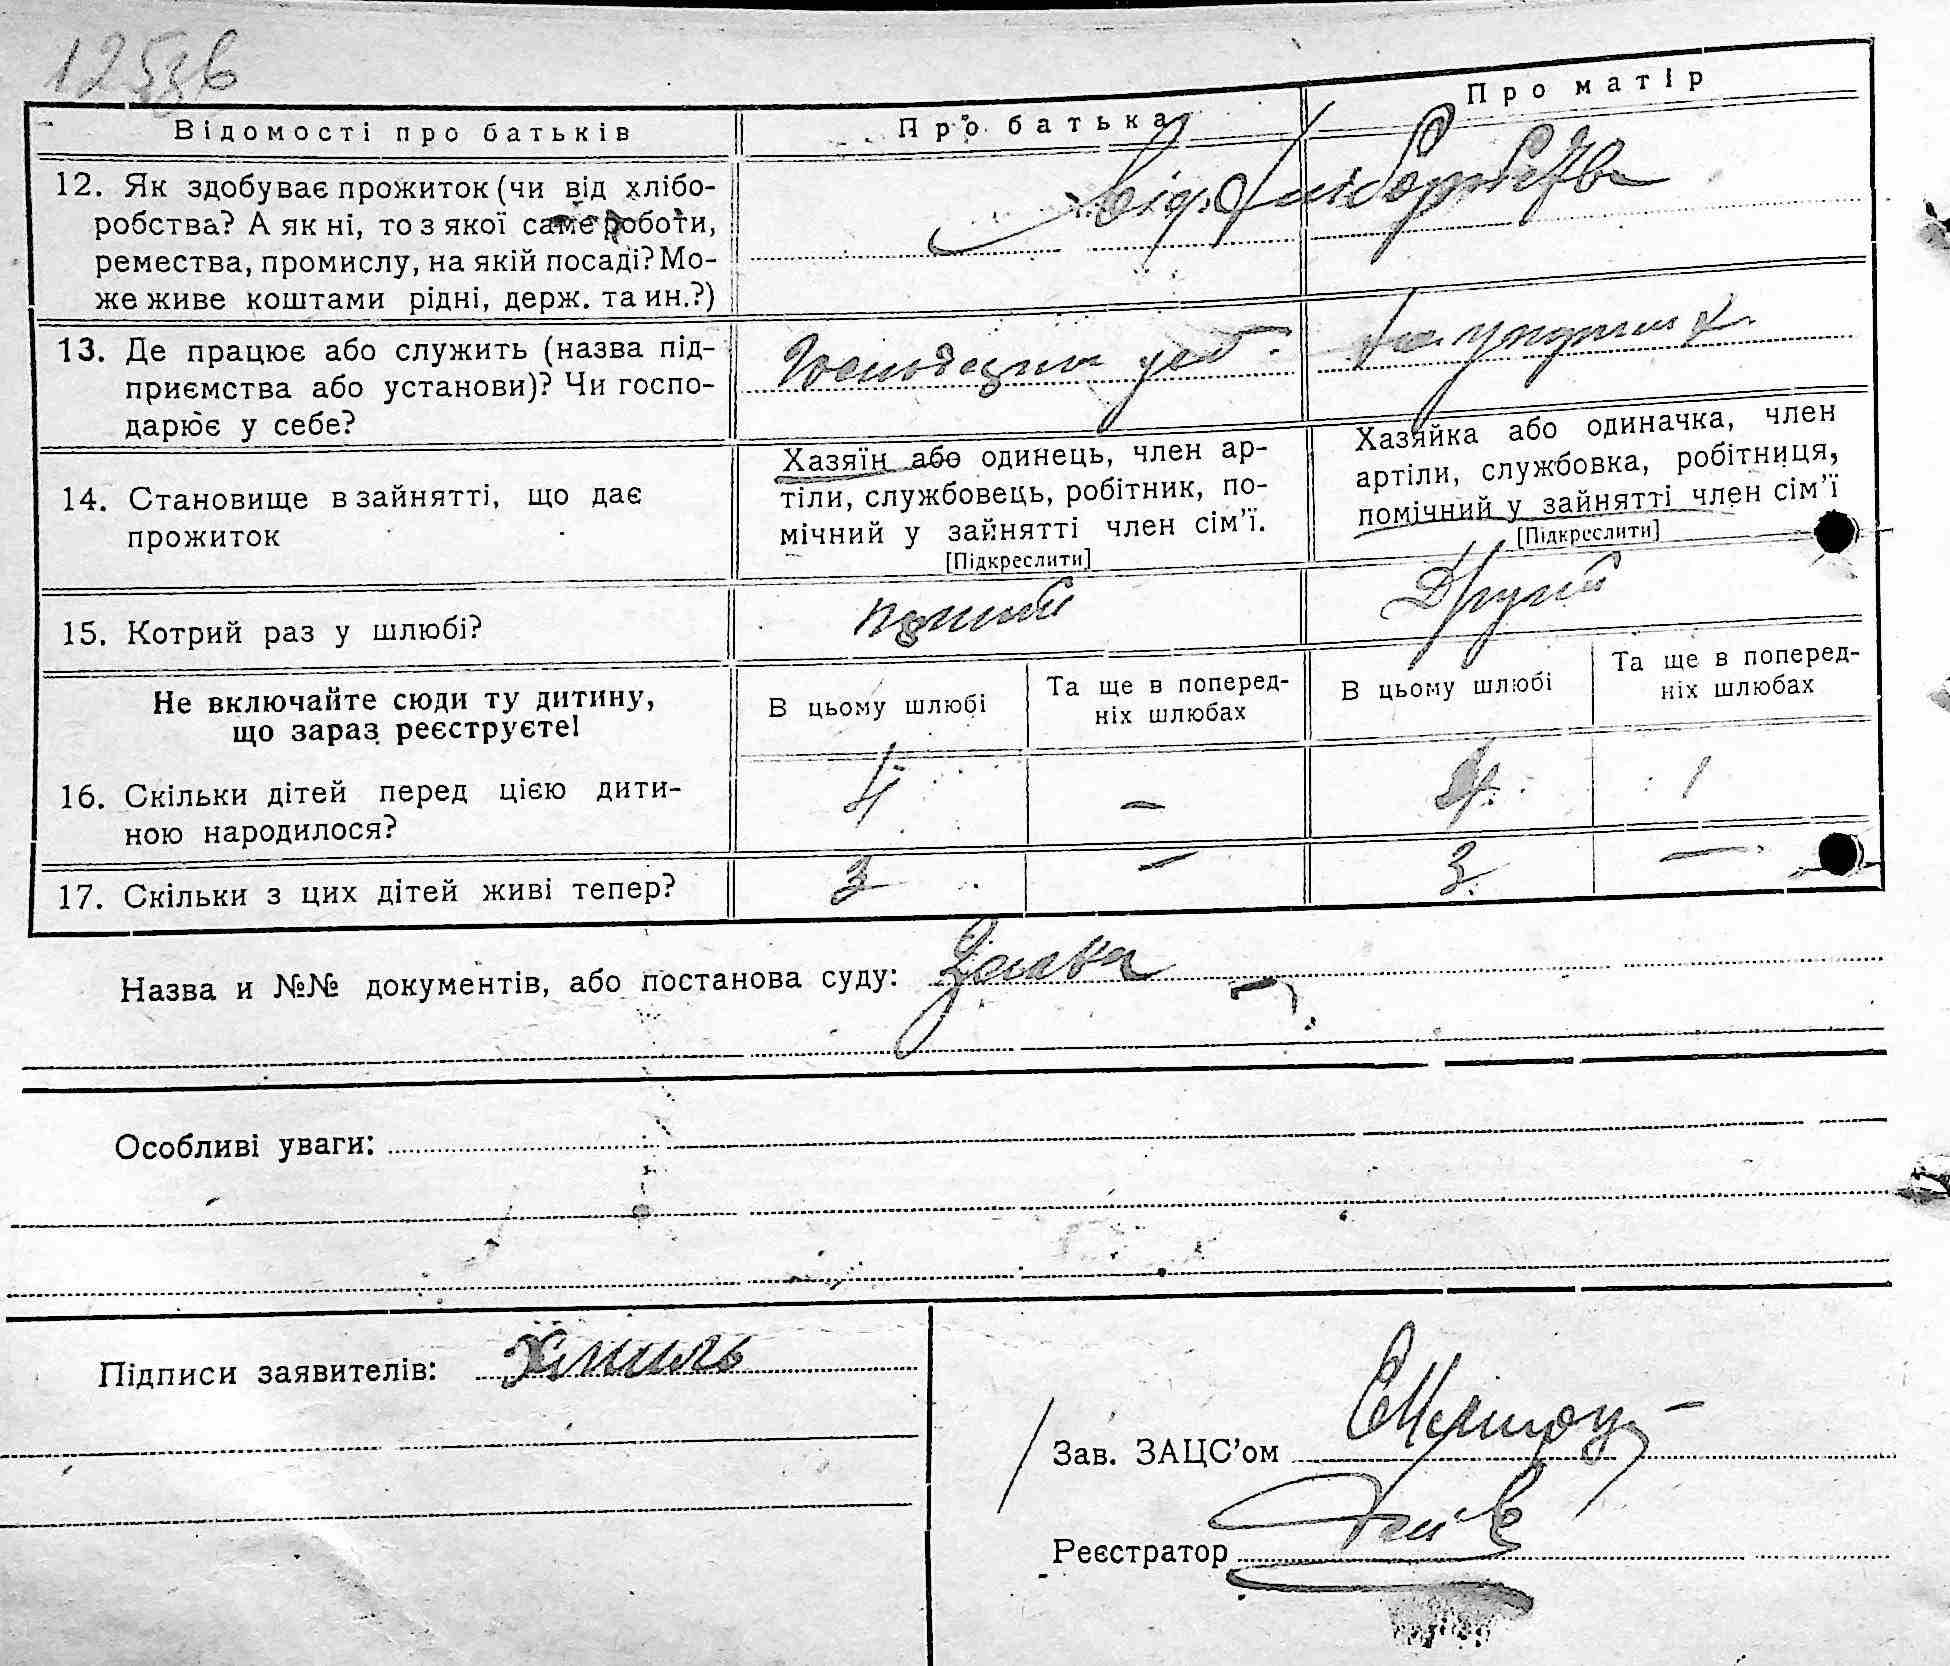 Відомості про батьків
Про батька
Про матір
12. Як здобуває прожиток (чи від хлібо-
робства? А як ні, то з якої саме роботи,
ремества, промислу, на якій посаді? Мо-
же живе коштами рідні, держ. та ин.?)
від хліборобства
13. Де працює або служить (назва під-
приємства або установи)? Чи госпо-
дарює у себе?
14. Становище в зайнятті, що дає
прожиток
Хазяїн або одинець, член ар-
тіли, службовець, робітник, по-
мічний у зайнятті член сім'ї.
[Підкреслити]
Хазяйка або одиначка, член
артіли, службовка, робітниця,
помічний у зайнятті член сім'ї
[Підкреслити]
15. Котрий раз у шлюбі?
Другий
Не включайте сюди ту дитину,
що зараз реєструєте!
В цьому шлюбі
Та ще в поперед-
ніх шлюбах
В цьому шлюбі
Та ще в поперед-
ніх шлюбах
16. Скільки дітей перед цією дити-
ною народилося?
4 — 4 1
17. Скільки з цих дітей живі тепер?
3 — 3 —
Назва и №№ документів, або постанова суду:
Особливі уваги:
Підписи заявителів: Хмиль
Зав. ЗАЦС'ом
Реєстратор